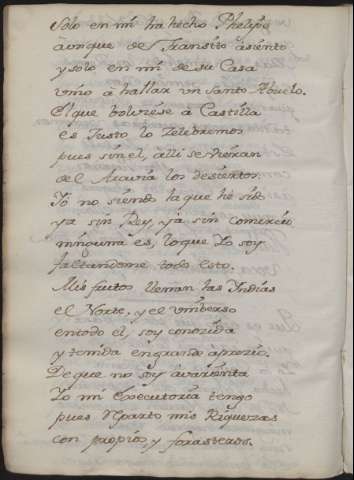 Solo en mi ha hecho Phelipe
aunque de Transito asiento
y solo en mi de su Casa
vino à hallar un Santo Abuelo.
El que bolviese à Castilla
es Justo lo Zelebremos
pues sin el, alli se vieran
de l Aravia los desiertos.
Yo no siendo la que hè sido
ya sin Rey, ya sin comercio
ninguna es, lo que Yo soy
faltandome todo esto.
Mis frutos llenan las Yndias
el Norte, y el vniberso
entodo el, soy conozida
y tenida en grande aprezio.
De que no soy avarienta
Yo mi Executoria tengo
pues Reparto mis Riquezas
con propios, y forasteros.